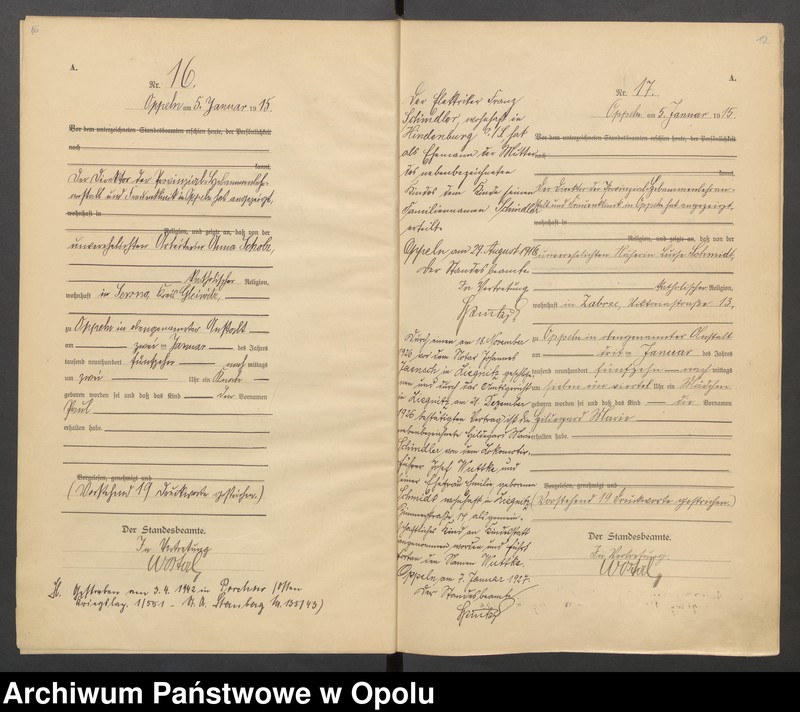 16
A.
Nr. 16.
Oppeln am 5. Januar 1915.
Vor dem unterzeichneten Standesbeamten erschien heute, der Persönlichkeit
nach
kannt,
Der Direktor der Provinzial-Hebammenlehr-
anstalt und Frauenklinik in Oppeln hat angezeigt,
wohnhaft in
Religion, und zeigte an, daß von der
unverehelichten Arbeiterin Anna
katholischer Religion,
wohnhaft in Kreis Gleiwitz,
zu Oppeln in obengenannter Anstalt
am zwei-ten Januar des Jahres
tausend neunhundert fünfzehn nachmittags
um zwei Uhr ein Knabe
geboren worden sei und daß das Kind den Vornamen
Paul
erhalten habe.
Vorgelesen, genehmigt und
(Vorstehend 19 Druckworte gestrichen.)
Der Standesbeamte.
In Vertretung
H. Gestorben am 3.4.1942 in
1/551 - St. A. Nr. 135/43)
17
A.
Nr. 17.
Oppeln am 5. Januar 1915.
Vor dem unterzeichneten Standesbeamten erschien heute, der Persönlichkeit
nach
kannt,
Der Direktor der Provinzial-Hebammenlehran-
stalt und Frauenklinik in Oppeln hat angezeigt,
wohnhaft in
Religion, und zeigte an, daß von der
unverehelichten Näherin Luise Schmidt,
katholischer Religion,
wohnhaft in Zabrze, 13,
zu Oppeln in obengenannter Anstalt
am dritten Januar des Jahres
tausend neunhundert fünfzehn nachmittags
um sieben ein viertel Uhr ein Mädchen
geboren worden sei und daß das Kind die Vornamen
Hildegard Marie
erhalten habe.
Vorgelesen, genehmigt und
(Vorstehend 19 Druckworte gestrichen.)
Der Standesbeamte.
In Vertretung.
Der Elektriker Franz
Schindler, wohnhaft in
Hindenburg O/S. hat
als Ehemann der Mutter
des nebenbezeichneten
Kindes dem Kinde seinen
Familiennamen Schindler
erteilt.
Oppeln, am 27. August 1916.
Der Standesbeamte
In Vertretung
Durch einen am 18. November
1926 vor dem Notar Johannes
in Liegnitz geschlosse-
nen und durch das Amtsgericht
in Liegnitz am 21. Dezember
1926 bestätigten Vertrag ist die
nebenbezeichnete Hildegard Marie
Schindler von dem Lokomotiv-
führer Josef Wuttke und
seiner Ehefrau Emilie geborenen
Schmidt wohnhaft in Liegnitz
als gemein-
schaftliches Kind an Kindesstatt
angenommen worden und führt
fortan den Namen Wuttke.
Oppeln, am 7. Januar 1927.
Der Standesbeamte.
Archiwum Państwowe w Opolu